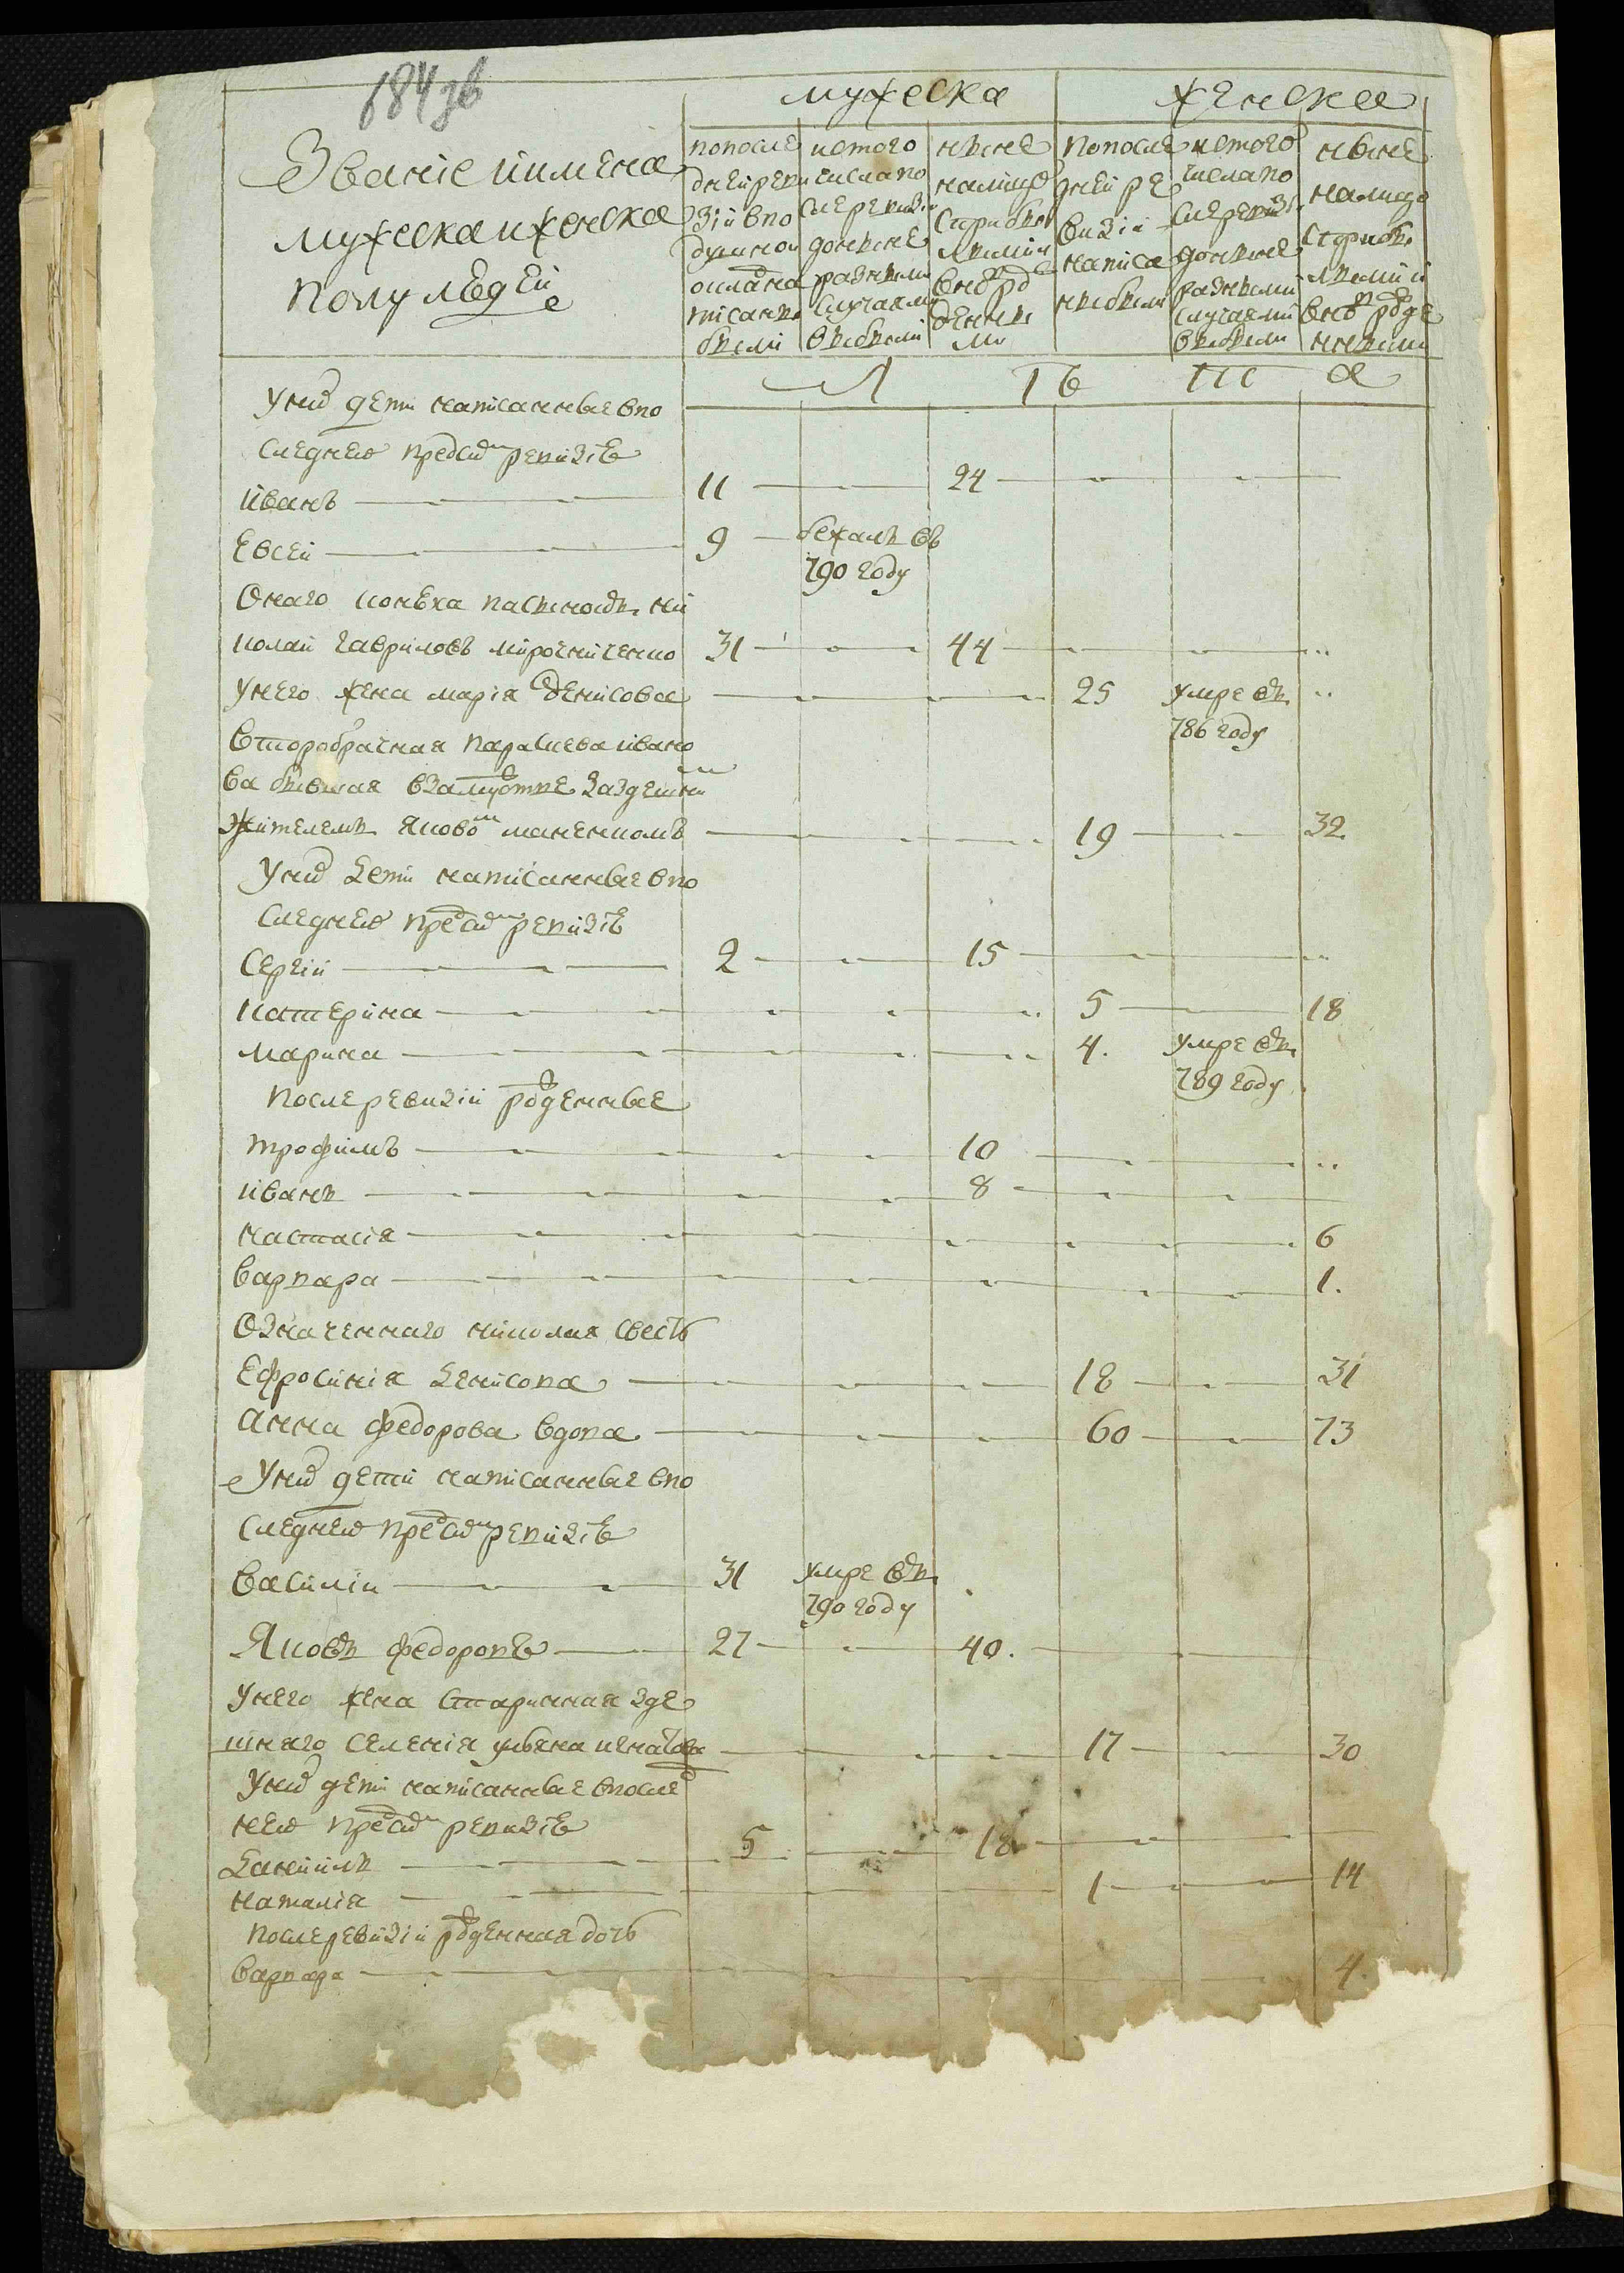 684 зв
мужеска
женска
Званіе иимена
мужеска иженска
полу людей
попосле
дней реви
зіи впо
душнои
окладна
писанъ
были
исто го
числапо
слеревизи
донынѣ
разными
случаями
выбыли
нынѣ
налицо
старобы
лыми и
вновь рож
денны
ми
попосле
дней ре
визіи
написа
ныбыли
исто го
числапо
слеревизі
донынѣ
разными
случаями
выбыли
нынѣ
налицо
старобы
лыми и
вновь рожде
нными
Л ѣ т а
Уних дети написанные впо
следнею пред сим ревизіѣ
Иванъ 11 24
Евсей 9 бежалъ въ
790 году
Онаго
колай Гавриловъ Мирочниченко 31 44
Унего жена Марія Денисова 25 умре въ
786 году
Второбрачная Параскева ивано
ва бывшая взамужстве заздешним
жителемъ Яковом 19 32
Уних дети написанные впо
следнею пред сим ревизіѣ
Сергій 2 15
Катерина 5 18
Марина 4. умре въ
789 году
После ревизіи рожденные
Трофимъ 10
Иванъ 8
Настасія 6
Варвара 1.
Означеннаго николая свесть
Ефросинія Денисова 18 31
Анна Федорова вдова 60 73
Уних дети написанные впо
следнею пред сим ревизіѣ
Василіи 31 умре въ
790 году
Яковъ Федоровъ 27 40.
Унего жена старинная зде
шнаго селенія ульяна игнатова 17 30
Уних дети написанные впослед
нею пред сим ревизіѣ
Даниилъ 5 18
Наталія 1 14
После ревизіи рожденная дочь
Варвара 4.